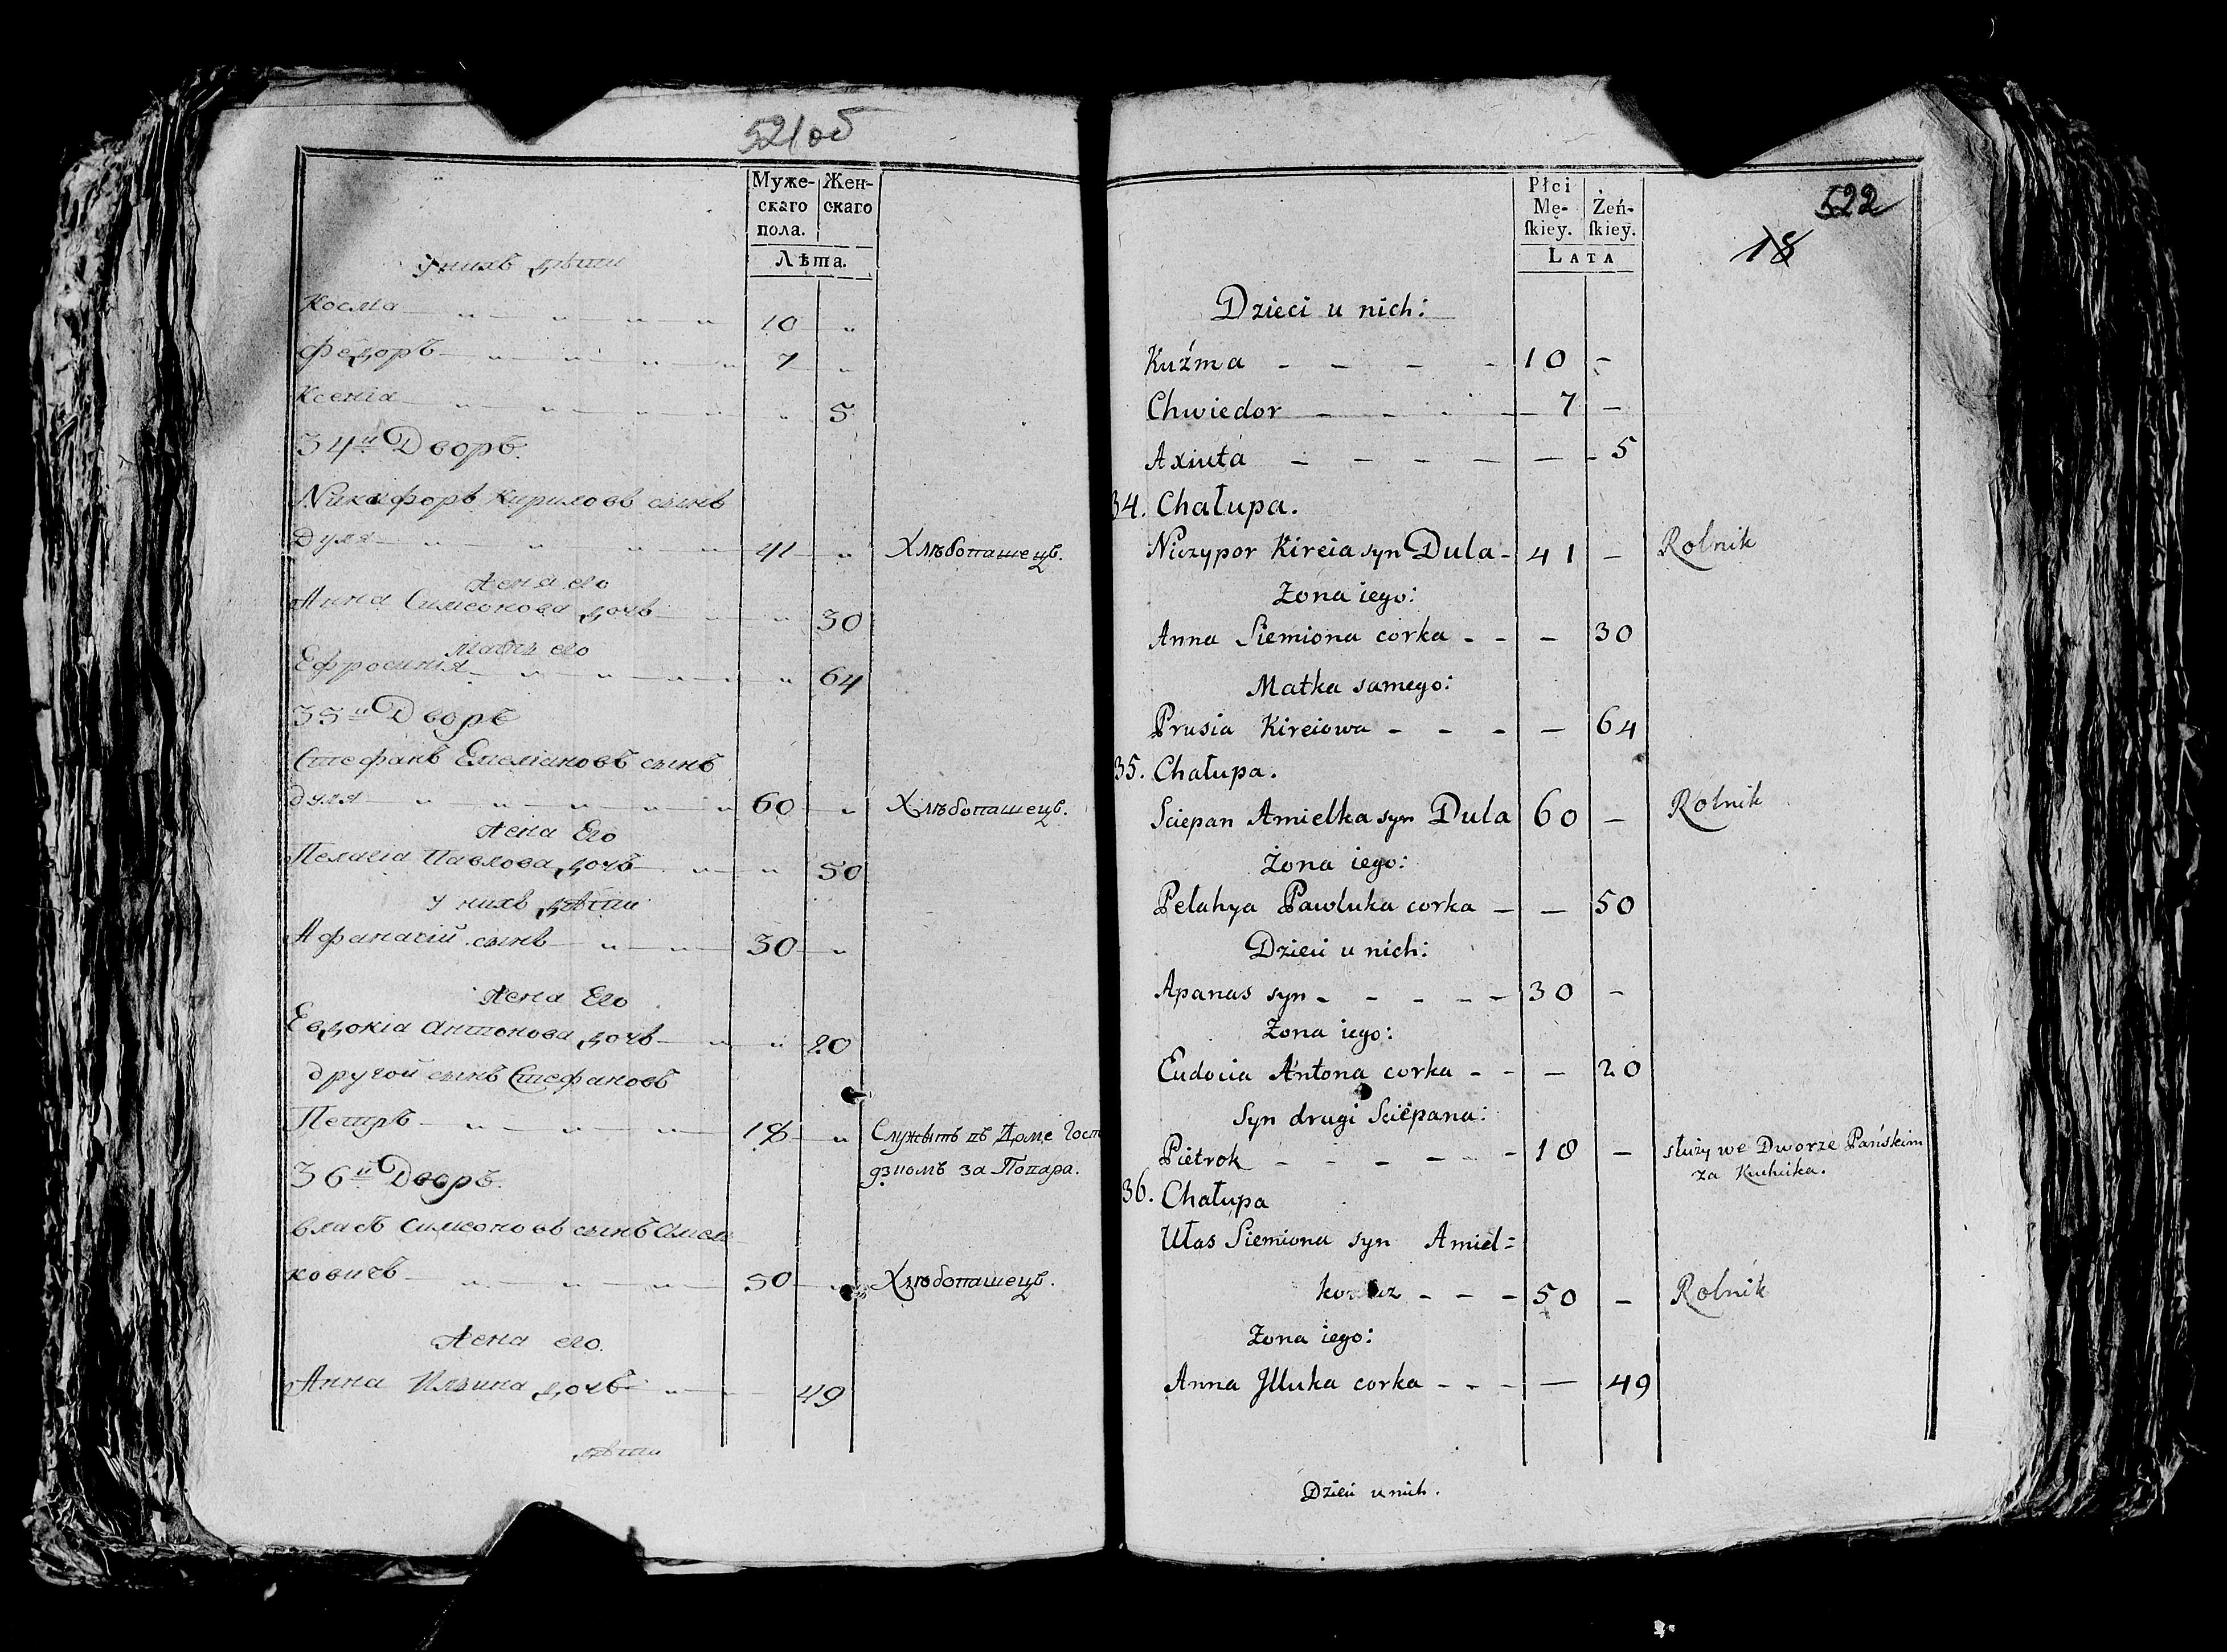 521об
Муже- Жен-
скаго скаго
пола.
Лѣта.
У нихъ дѣти
Косма 10 „
Федоръ 7 „
Ксенiа „ 5
34й Дворъ.
Никифоръ Кириловъ сынъ
Дуля 41 „ Хлѣбопашецъ.
Жена его
Анна Симеонова дочь „ 30
Мать его
Ефросинiя „ 64
35й Дворъ
Стефанъ Емелiановъ сынъ
Дуля 60 „ Хлѣбопашецъ.
Жена Его
Пелагiа Павлова дочь „ 50
У нихъ дѣти
Афанасiй сынъ 30 „
Жена Его
Евдокiа Антонова дочь „ 20
Другой сынъ Стефановъ
Петръ 18 „ Служитъ въ Доме
за Повара.
36й Дворъ.
Власъ Симеоновъ сынъ Амель
ковичъ 50 „ Хлѣбопашецъ.
Жена его.
Анна Ильина дочь „ 49
дѣти
522
18
Płci
Mę- Żeń-
ſkiey. ſkiey.
LATA
Dzieci u nich:
Kuźma - - - - 10 -
Chwiedor - - - - 7 -
Axiuta - - - - - 5
34. Chałupa.
Niczypor Kireia syn Dula - 41 - Rolnik
Żona iego:
Anna Siemiona corka - - - 30
Matka samego:
Prusia Kireiowa - - - - 64
35. Chałupa.
Sciepan Amielka syn Dula 60 - Rolnik
Żona iego:
Pelahya Pawluka corka - - 50
Dzieci u nich:
Apanas syn - - - - - 30 -
Żona iego:
Eudocia Antona corka - - - 20
Syn drugi Sciepana:
Pietrok - - - - - - 18 - służy we Dworze Pańskim
za Kuchcika.
36. Chałupa
Ułas Siemiona syn Amiel=
kowicz - - - 50 - Rolnik
Żona iego:
Anna Jlluka corka - - - - 49
Dzieci u nich.